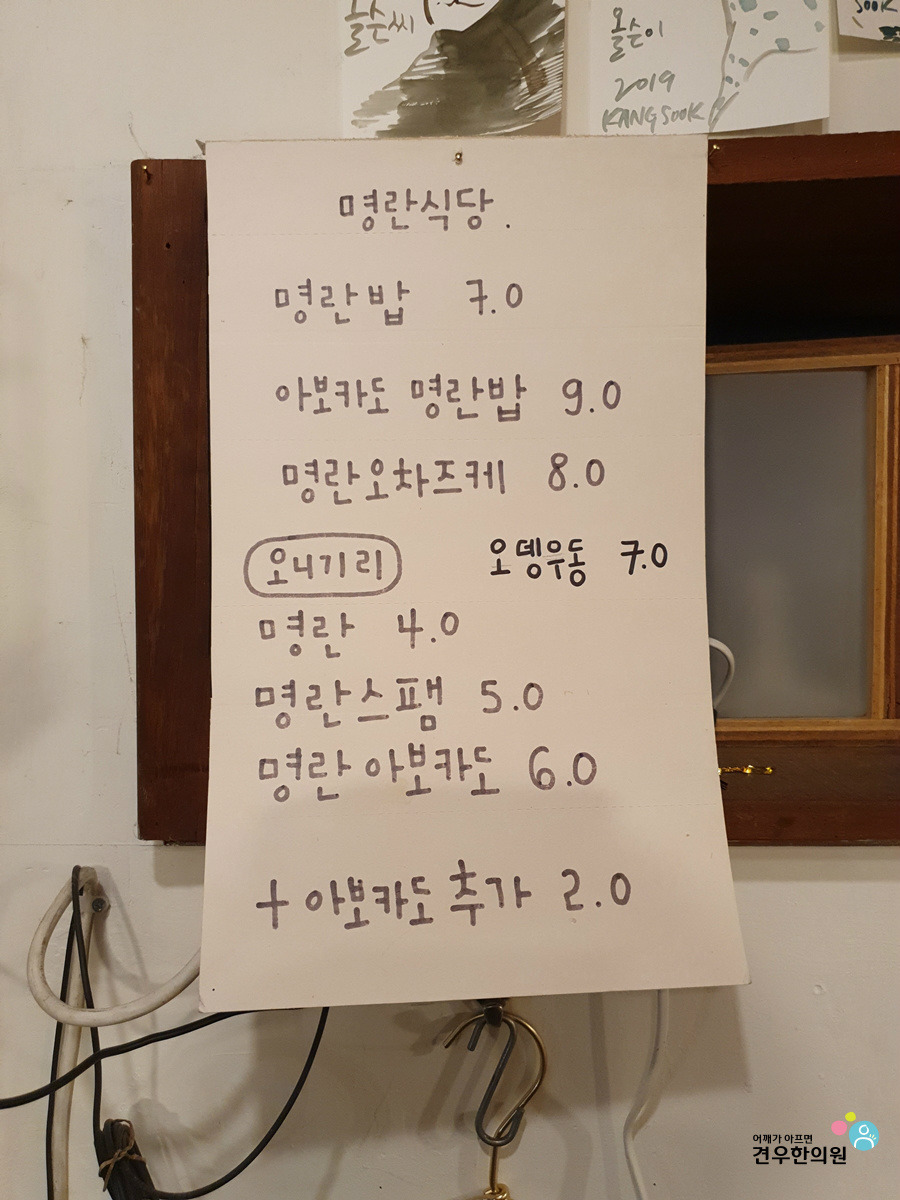 올순씨
올순이
2019
KANGSOOK
SOOK
명란식당.
명란밥 7.0
아보카도 명란밥 9.0
명란오차즈케 8.0
오니기리 오뎅우동 7.0
명란 4.0
명란스팸 5.0
명란 아보카도 6.0
+ 아보카도 추가 2.0
어깨가 아프면
견우한의원